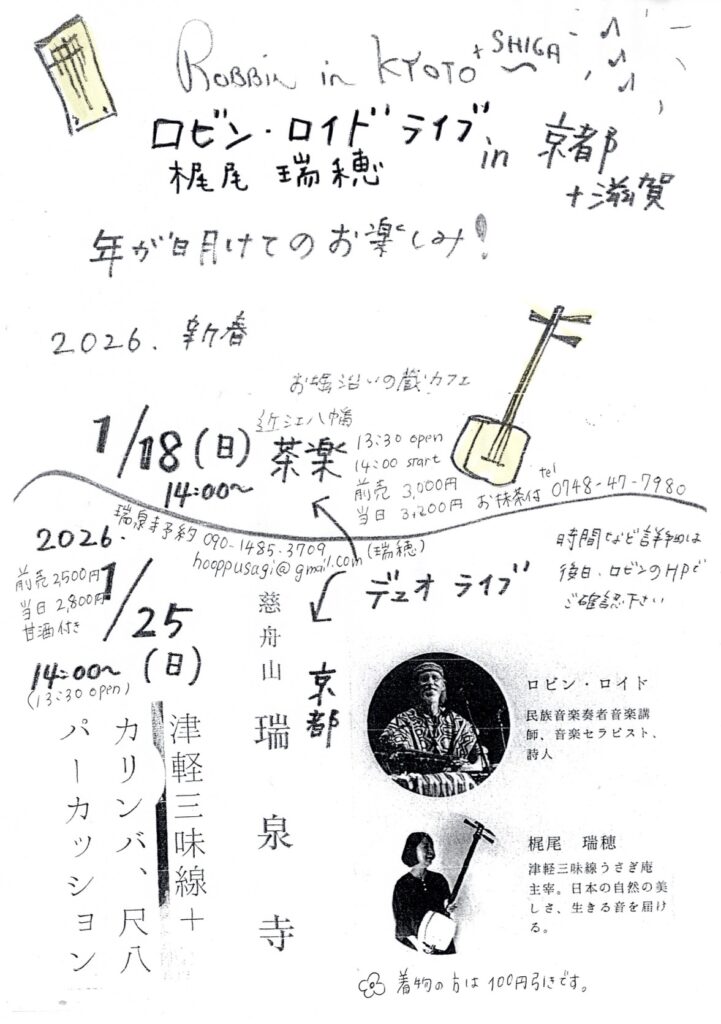 ROBBIN in KYOTO + SHIGA
ロビン・ロイド ライブ
梶尾 瑞穂
in 京都
+滋賀
年が明けてのお楽しみ!
2026. 新春
お堀沿いの蔵カフェ
近江八幡
1/18(日) 茶楽
14:00~
13:30 open
14:00 start
前売 3,000円
当日 3,200円 お抹茶付
tel 0748-47-7980
瑞泉寺予約 090-1485-3709
hooppusagi@gmail.com (瑞穂)
デュオ ライブ
時間など詳細は
後日、ロビンのHPで
ご確認下さい
2026.
前売 2,500円
当日 2,800円
甘酒付き
1/25
(日)
14:00~
(13:30 open)
京都
慈舟山 瑞泉寺
津軽三味線+
カリンバ、尺八
パーカッション
ロビン・ロイド
民族音楽奏者音楽講
師、音楽セラピスト、
詩人
梶尾 瑞穂
津軽三味線うさぎ庵
主宰。日本の自然の美
しさ、生きる音を届け
る。
着物の方は100円引きです。